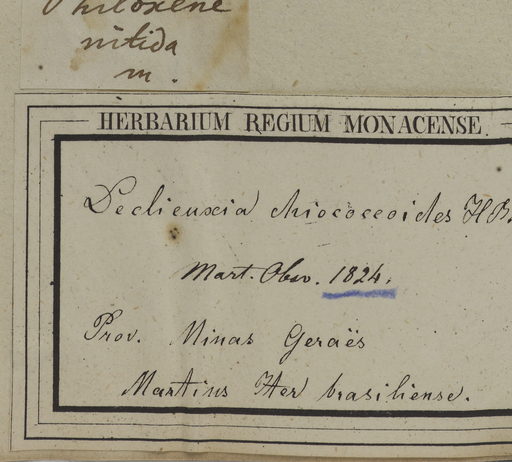 Philoxene
nitida
m.
HERBARIUM REGIUM MONACENSE.
Declieuxia chiococcoides H B.
Mart. Obsv. 1824.
Prov. Minas Geraës
Martius Iter brasiliense.